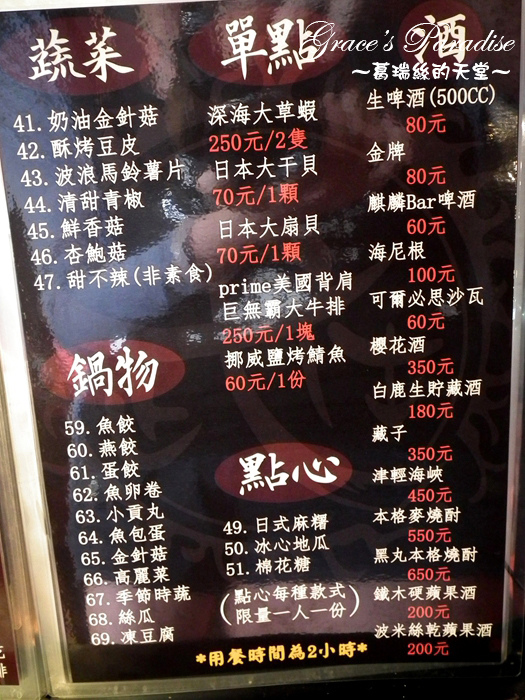 Grace's Paradise
～葛瑞絲的天堂～
蔬菜
41.奶油金針菇
42.酥烤豆皮
43.波浪馬鈴薯片
44.清甜青椒
45.鮮香菇
46.杏鮑菇
47.甜不辣(非素食)
鍋物
59.魚餃
60.燕餃
61.蛋餃
62.魚卵卷
63.小貢丸
64.魚包蛋
65.金針菇
66.高麗菜
67.季節時蔬
68.絲瓜
69.凍豆腐
單點
深海大草蝦
250元/2隻
日本大干貝
70元/1顆
日本大扇貝
70元/1顆
prime美國背肩
巨無霸大牛排
250元/1塊
挪威鹽烤鯖魚
60元/1份
點心
49.日式麻糬
50.冰心地瓜
51.棉花糖
(點心每種款式
限量一人一份)
酒
生啤酒(500CC)
80元
金牌
80元
麒麟Bar啤酒
60元
海尼根
100元
可爾必思沙瓦
60元
櫻花酒
350元
白鹿生貯藏酒
180元
藏子
350元
津輕海峽
450元
本格麥燒酎
550元
黑丸本格燒酎
650元
鐵木硬蘋果酒
200元
波米絲乾蘋果酒
200元
*用餐時間為2小時*